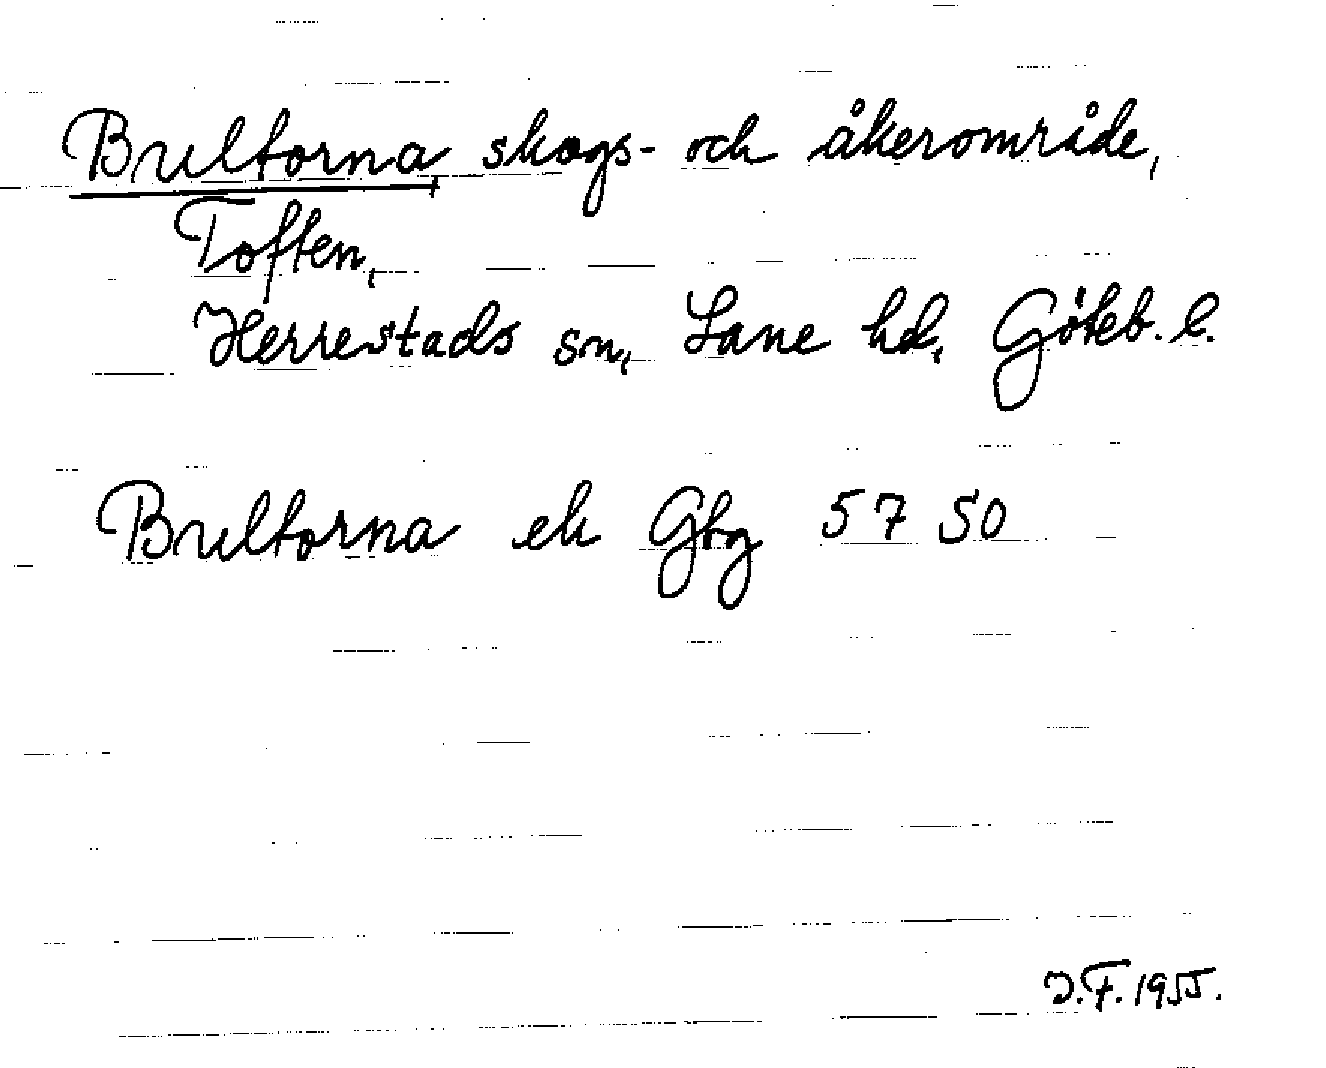 Brultorna, skogs- och åkerområde,
Toften,
Herrestads sn, Lane hd, Göteb. l.
Brultorna ek Gbg 57 50
J.F. 1955.